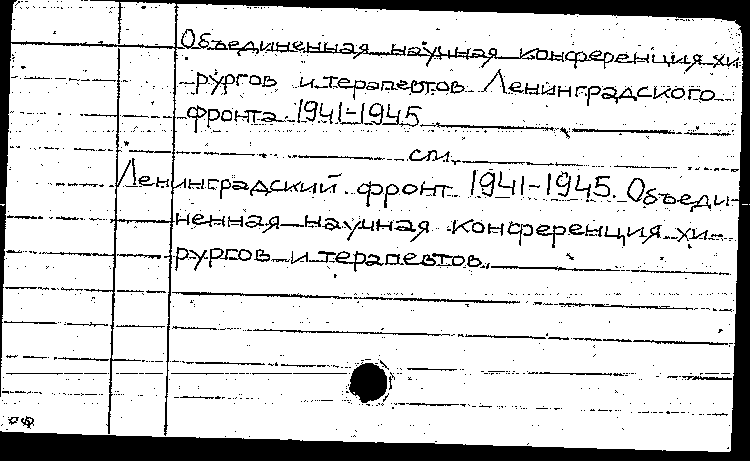 Объединенная научная конференция хи
рургов и терапевтов Ленинградского
фронта 1941-1945
см.
Ленинградский фронт 1941-1945. Объеди-
ненная научная конференция хи-
рургов и терапевтов.